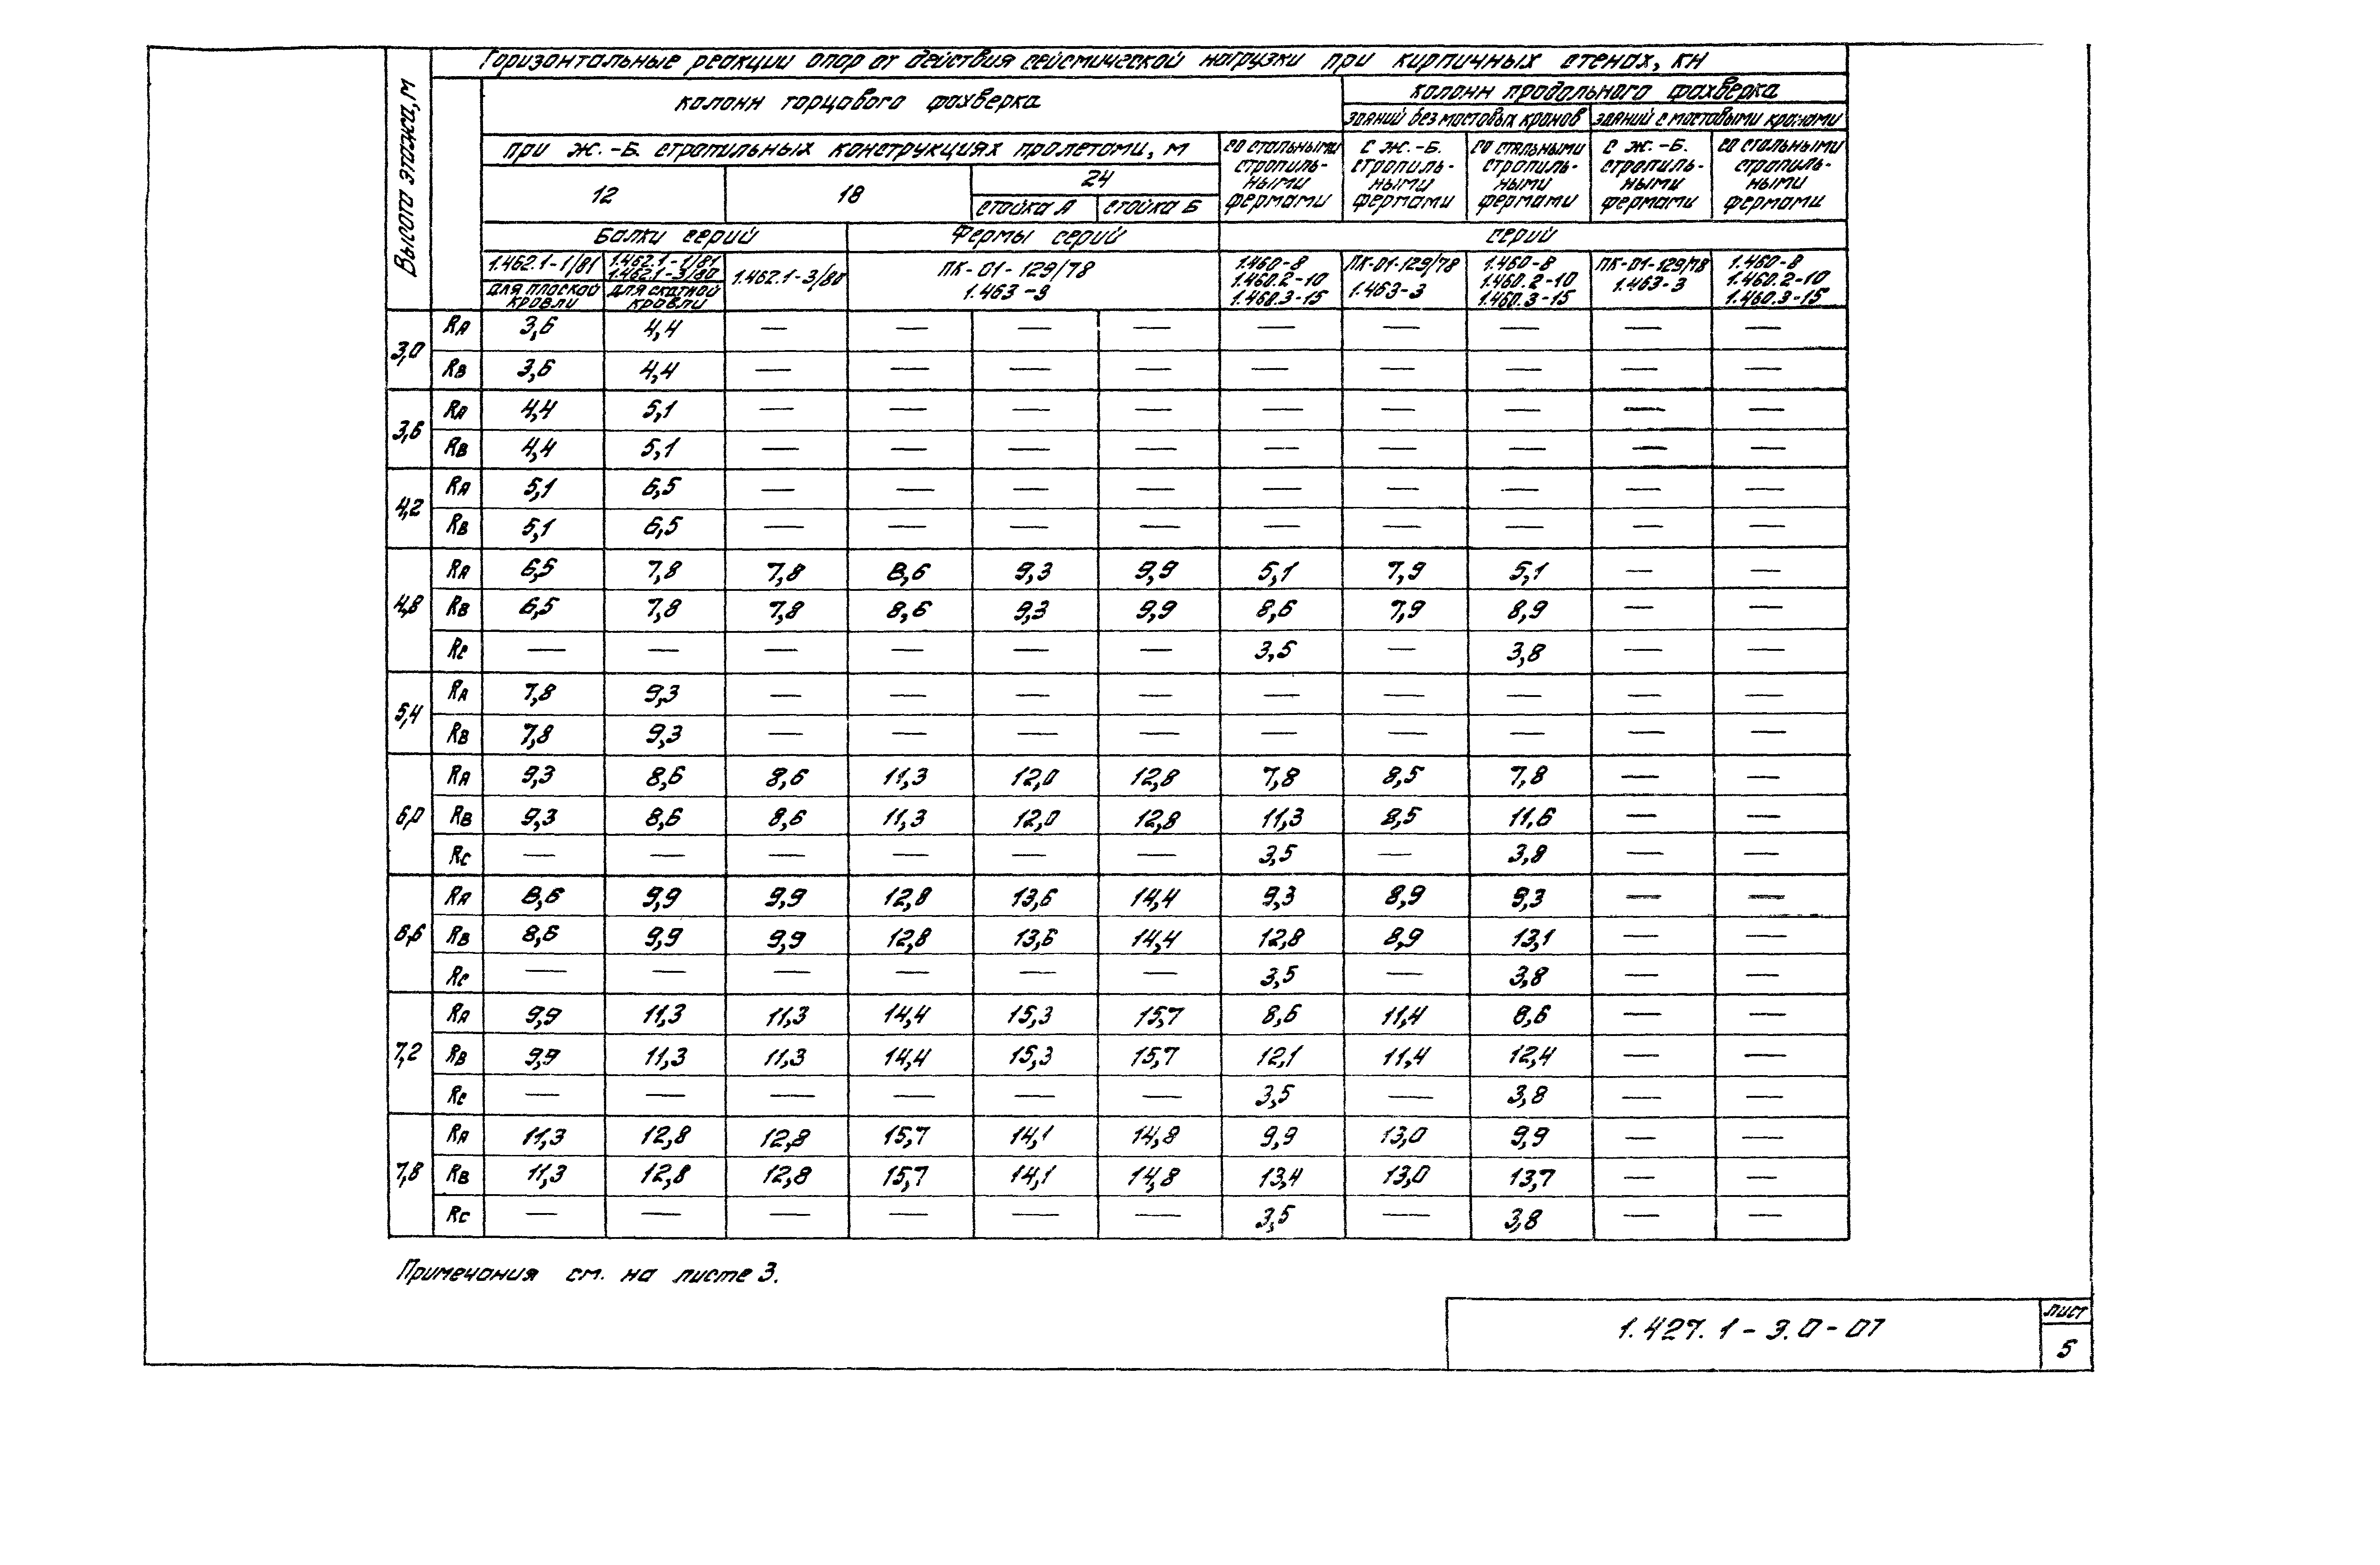 Горизонтальные реакции опор от действия сейсмической нагрузки при кирпичных стенах, кН
Высота этажа, м
колонн торцового фахверка
колонн продольного фахверка
зданий без мостовых кранов
зданий с мостовыми кранами
при ж.-б. стропильных конструкциях пролетами, м
со стальными стропиль-ными фермами
с ж.-б. стропиль-ными фермами
со стальными стропиль-ными фермами
с ж.-б. стропиль-ными фермами
со стальными стропиль-ными фермами
12 18 24
стойка А стойка Б
Балки серий
Фермы серий
серий
1.462.1-1/81 для плоской кровли
1.462.1-1/81 1.462.1-3/80 для скатной кровли
1.462.1-3/80
ПК-01-129/78 1.463-3
1.460-8 1.460.2-10 1.460.3-15
ПК-01-129/78 1.463-3
1.460-8 1.460.2-10 1.460.3-15
ПК-01-129/78 1.463-3
1.460-8 1.460.2-10 1.460.3-15
3,0 RА 3,6 4,4 — — — — — — — — —
RВ 3,6 4,4 — — — — — — — — —
3,6 RА 4,4 5,1 — — — — — — — — —
RВ 4,4 5,1 — — — — — — — — —
4,2 RА 5,1 6,5 — — — — — — — — —
RВ 5,1 6,5 — — — — — — — — —
4,8 RА 6,5 7,8 7,8 8,6 9,3 9,9 5,1 7,9 5,1 — —
RВ 6,5 7,8 7,8 8,6 9,3 9,9 8,6 7,9 8,9 — —
RС — — — — — — 3,5 — 3,8 — —
5,4 RА 7,8 9,3 — — — — — — — — —
RВ 7,8 9,3 — — — — — — — — —
6,0 RА 9,3 8,6 8,6 11,3 12,0 12,8 7,8 8,5 7,8 — —
RВ 9,3 8,6 8,6 11,3 12,0 12,8 11,3 8,5 11,6 — —
RС — — — — — — 3,5 — 3,8 — —
6,6 RА 8,6 9,9 9,9 12,8 13,6 14,4 9,3 8,9 9,3 — —
RВ 8,6 9,9 9,9 12,8 13,6 14,4 12,8 8,9 13,1 — —
RС — — — — — — 3,5 — 3,8 — —
7,2 RА 9,9 11,3 11,3 14,4 15,3 15,7 8,6 11,4 8,6 — —
RВ 9,9 11,3 11,3 14,4 15,3 15,7 12,1 11,4 12,4 — —
RС — — — — — — 3,5 — 3,8 — —
7,8 RА 11,3 12,8 12,8 15,7 14,1 14,8 9,9 13,0 9,9 — —
RВ 11,3 12,8 12,8 15,7 14,1 14,8 13,4 13,0 13,7 — —
RС — — — — — — 3,5 — 3,8 — —
Примечания см. на листе 3.
1.427.1-3.0-07
лист
5